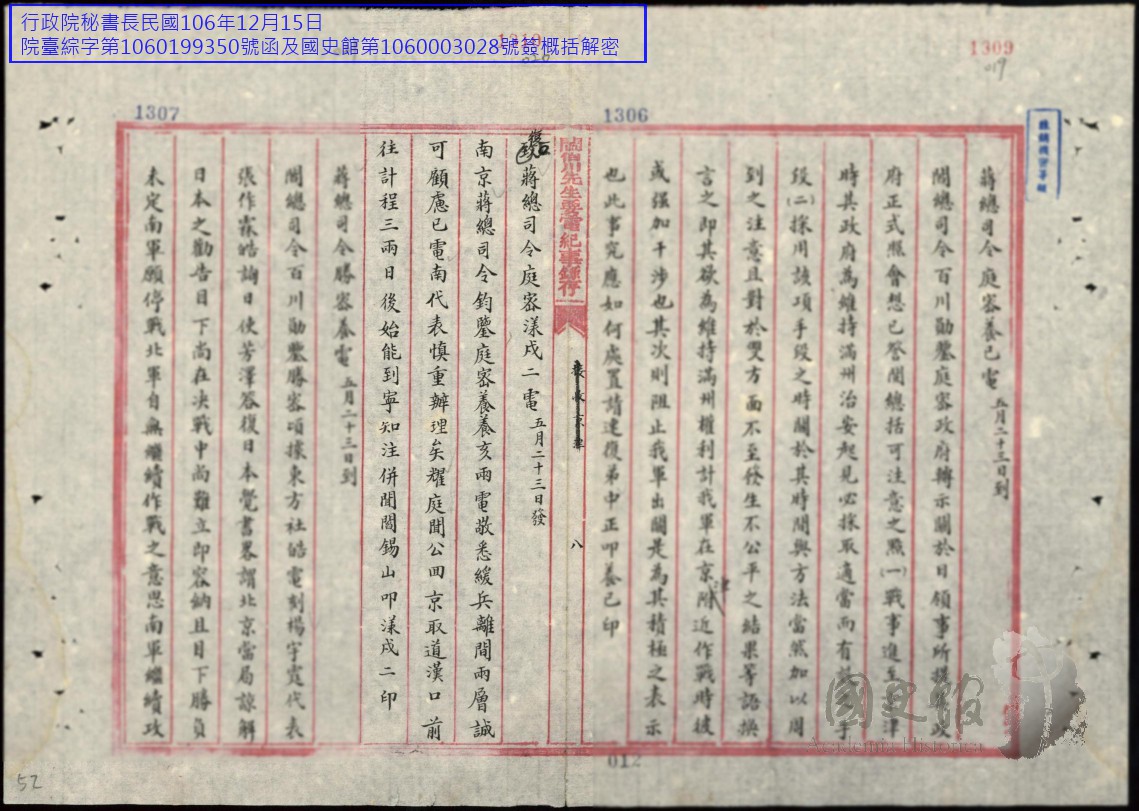 行政院秘書長民國106年12月15日
院臺綜字第1060199350號函及國史館第1060003028號簽概括解密
1309
1306
1307
蔣總司令庭密養已電 五月二十三日到
閻總司令百川勛鑒庭密政府轉示關於日領事所提致政
府正式照會想已詧閱總括可注意之點(一)戰事進至京津
時其政府為維持滿州治安起見必採取適當而有效手
段(二)採用該項手段之時關於其時間與方法當然加以周
到之注意且對於雙方面不至發生不公平之結果等語換
言之即其欲為維持滿州權利計我軍在京津附近作戰時彼
或强加干涉也其次則阻止我軍出關是為其積極之表示
也此事究應如何處置請速復弟中正叩養已印
閻伯川先生要電紀事錄存
八
復蔣總司令庭密漾戌二電 五月二十三日發
南京蔣總司令鈞鑒庭密養養亥兩電敬悉緩兵離間兩層誠
可顧慮已電南代表慎重辦理矣耀庭聞公回京取道漢口前
往計程三兩日後始能到寧知注併聞閻錫山叩漾戌二印
蔣總司令勝密養電 五月二十三日到
閻總司令百川勛鑒勝密頃據東方社皓電刻楊宇霆代表
張作霖皓詢日使芳澤答復日本覺書畧謂北京當局諒解
日本之勸告目下尚在決戰中尚難立即容納且目下勝負
未定南軍願停戰北軍自無繼續作戰之意思南軍繼續政
012
52
國史館
Academia Historica